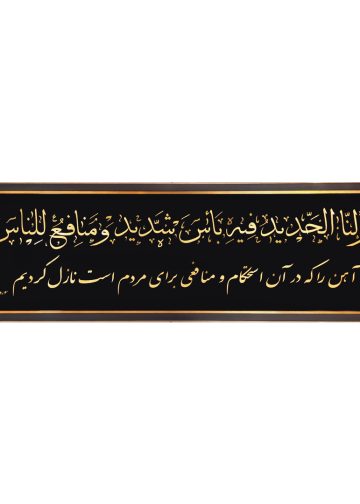 لنَا الحَدِيدَ فِيهِ بَأْسٌ شَدِيدٌ وَمَنَافِعُ لِلنَّاسِ
آهن را که در آن استحکام و منافعی برای مردم است نازل کردیم